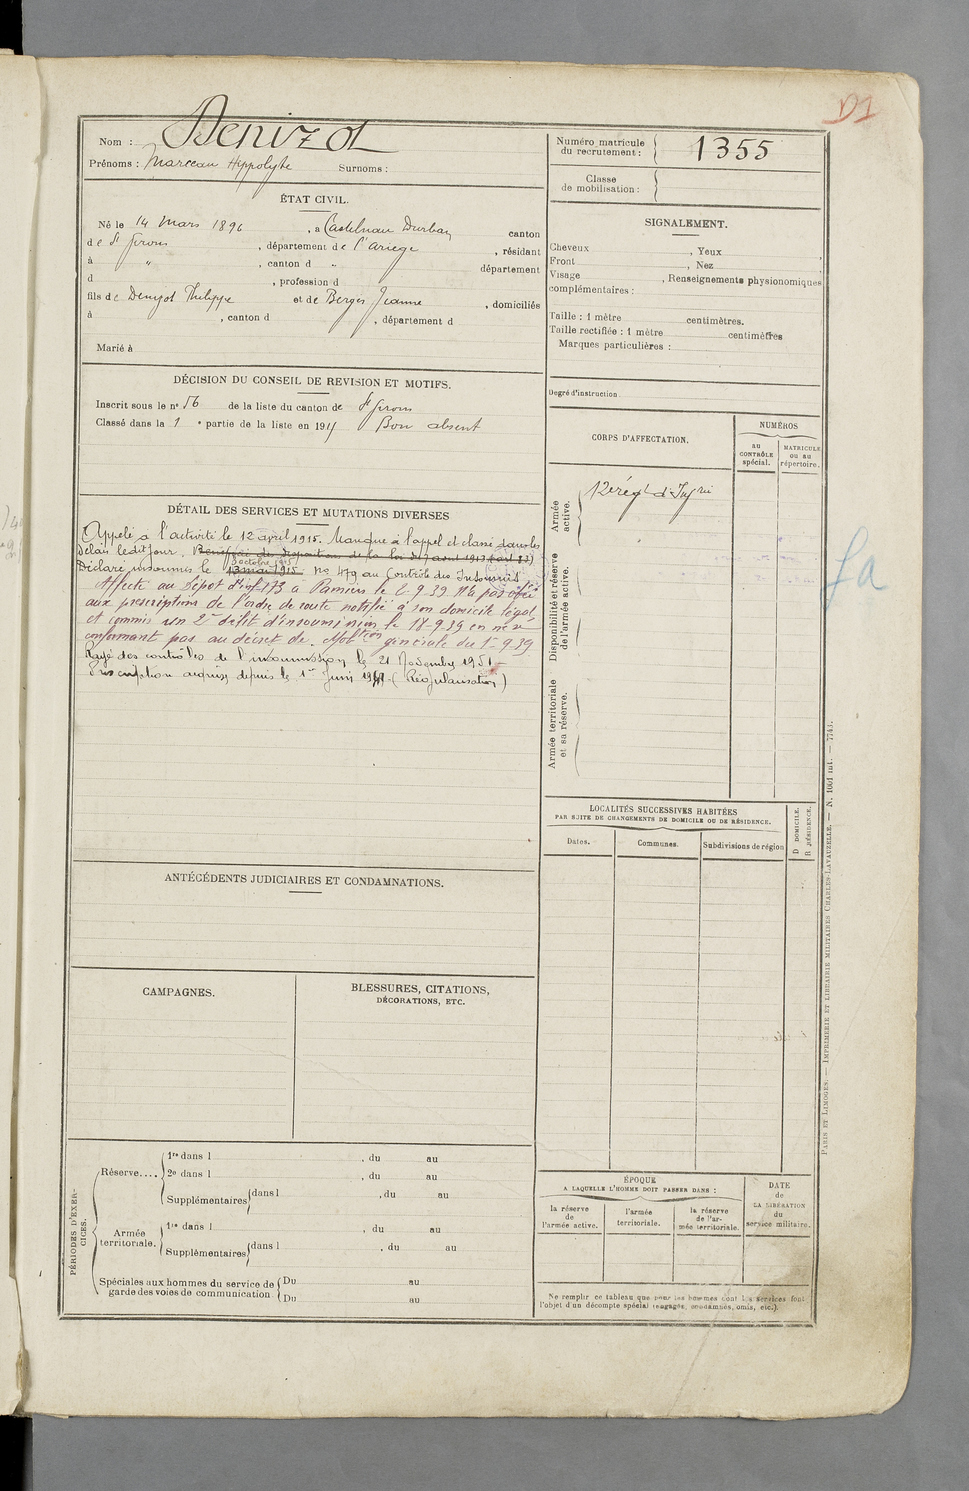 D1
Nom : Denizot
Prénoms : Marceau Hippolyte Surnoms :
Numéro matricule du recrutement : 1355
Classe de mobilisation :
ÉTAT CIVIL.
Né le 14 mars 1896, à Castelnau Durban canton
de St Girons, département de l'Ariège, résidant
à ", canton d " département
d , profession d
fils de Denizot Philippe et de Bergès Jeanne, domiciliés
à , canton d , département d
Marié à
SIGNALEMENT.
Cheveux , Yeux
Front , Nez
Visage , Renseignements physionomiques
complémentaires :
Taille : 1 mètre centimètres.
Taille rectifiée : 1 mètre centimètres
Marques particulières :
Degré d'instruction
DÉCISION DU CONSEIL DE REVISION ET MOTIFS.
Inscrit sous le no 56 de la liste du canton de St Girons
Classé dans la 1 e partie de la liste en 1915 Bon absent
DÉTAIL DES SERVICES ET MUTATIONS DIVERSES
Appelé à l'activité le 12 avril 1915. Manque à l'appel et classé dans les
délais ledit jour. Bénéficié des dispositions de la loi du 7 août 1913 (art )
3 octobre 1915
Déclaré insoumis le 13 mai 1915 no 479 au Contrôle des Insoumis
Affecté au Dépôt d'inf 173 à Pamiers le 2-9-39 N'a pas obéi
aux prescriptions de l'ordre de route notifié à son domicile légal
et commis un 2e délit d'insoumission le 18-9-39 en ne se
conformant pas au décret de Mobtion générale du 1-9-39
Rayé des contrôles de l'insoumission le 21 Novembre 1951 -
Prescription acquise depuis le 1er Juin 19 - (Régularisation)
CORPS D'AFFECTATION.
NUMÉROS
au CONTRÔLE spécial.
MATRICULE ou au répertoire.
Armée active.
12e régt d'Infrie
Disponibilité et réserve de l'armée active.
Armée territoriale et sa réserve.
fa
LOCALITÉS SUCCESSIVES HABITÉES
PAR SUITE DE CHANGEMENTS DE DOMICILE OU DE RÉSIDENCE.
Dates.
Communes.
Subdivisions de région
D DOMICILE.
R RÉSIDENCE.
ANTÉCÉDENTS JUDICIAIRES ET CONDAMNATIONS.
CAMPAGNES.
BLESSURES, CITATIONS,
DÉCORATIONS, ETC.
PÉRIODES D'EXERCICES.
Réserve.... 1re dans l , du au
2e dans l , du au
Supplémentaires dans l , du au
Armée territoriale. 1re dans l , du au
Supplémentaires dans l , du au
Spéciales aux hommes du service de garde des voies de communication. Du au
Du au
ÉPOQUE
A LAQUELLE L'HOMME DOIT PASSER DANS :
la réserve de l'armée active.
l'armée territoriale.
la réserve de l'armée territoriale.
DATE de LA LIBÉRATION du service militaire.
Ne remplir ce tableau que pour les hommes dont les services font
l'objet d'un décompte spécial (engagés, condamnés, omis, etc.).
PARIS ET LIMOGES. — IMPRIMERIE ET LIBRAIRIE MILITAIRES CHARLES-LAVAUZELLE. — N. 1001 int. — 7743.